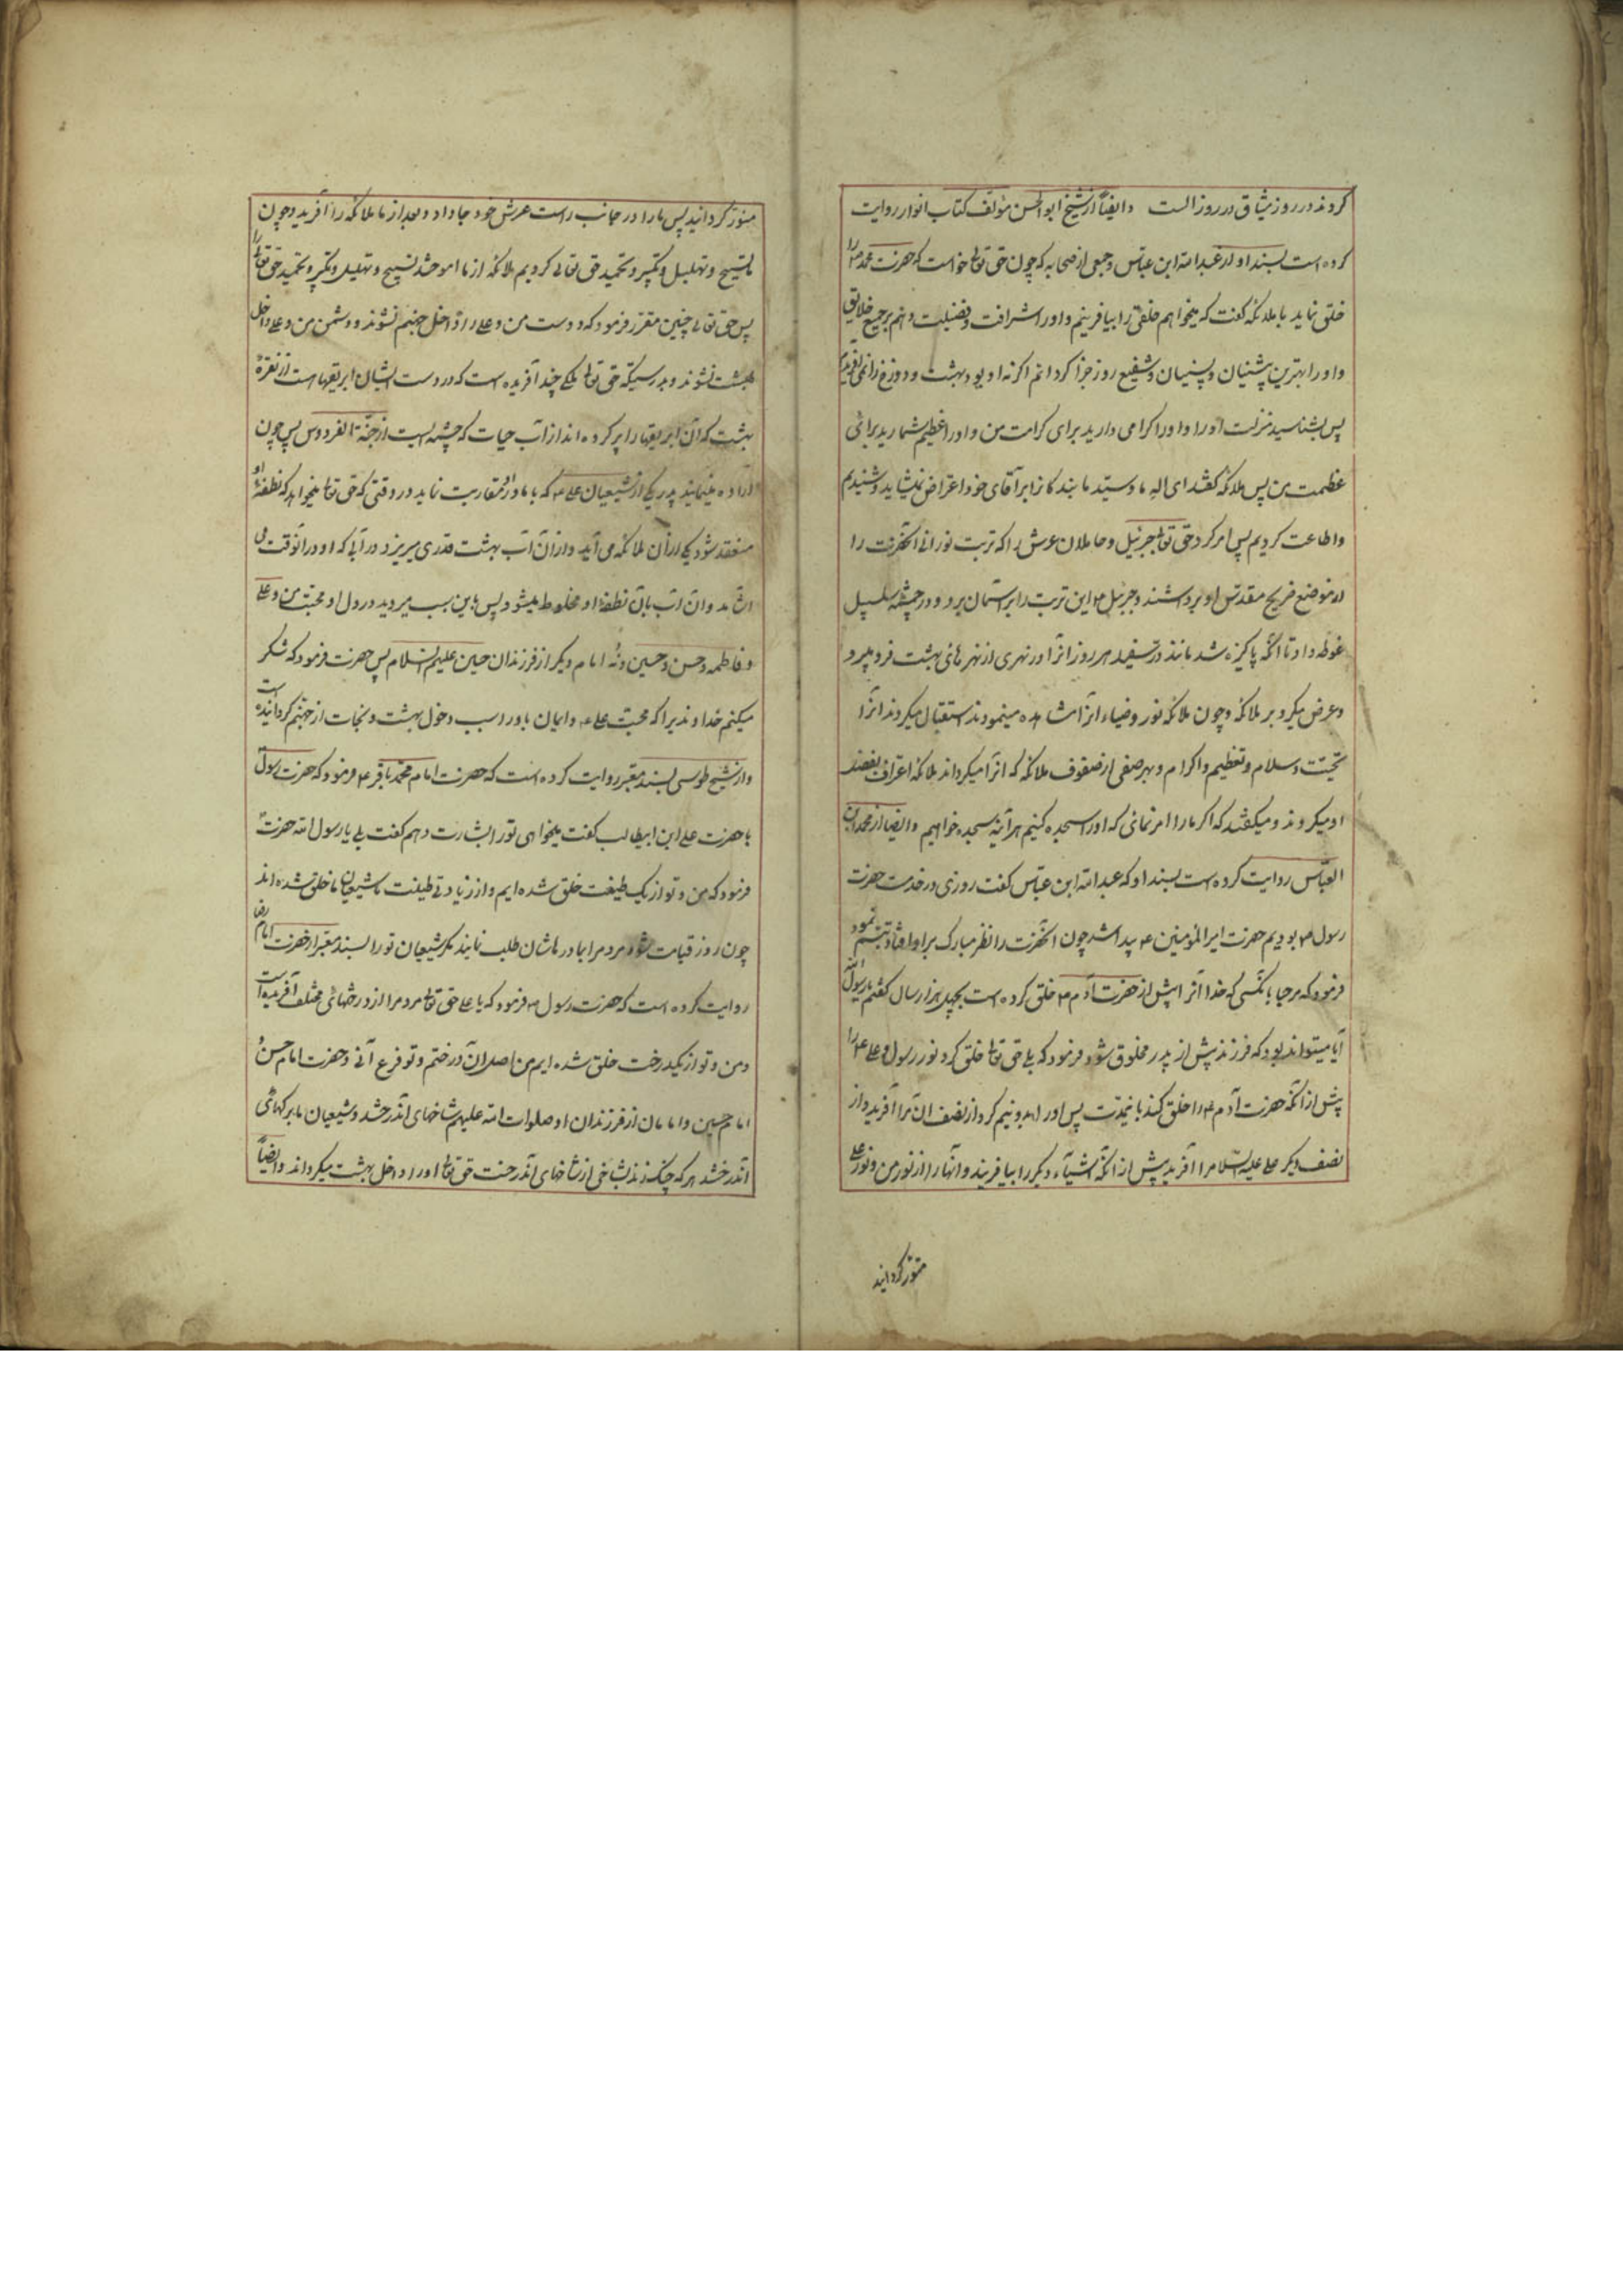 کردند در روز میثاق در روز الست وایضاً از شیخ ابوالحسن مؤلف کتاب انوار روایت
کرده است بسند او از عبدالله ابن عباس و جمعی از صحابه که چون حق تعالی خواست که حضرت محمد ص را
خلق نماید با ملائکه گفت که میخواهم خلقی را بیافرینم و او را شرافت و فضیلت دهم بر جمیع خلایق
و او را بهترین پیشنیان و پسنیان و شفیع روز جزا گردانم اگر نه او بود بهشت و دوزخ را نمی آفریدم
پس بشناسید منزلت او را و او را گرامی دارید برای کرامت من و او را عظیم شمارید برای
عظمت من پس ملائکه گفتند ای اله ما و سید ما بندگانرا بر آقای خود اعتراض نمیشاید و شنیدیم
و اطاعت کردیم پس امر کرد حق تعالی جبرئیل و حاملان عرش را که تربت نورانی آنحضرت را
از موضع ضریح مقدس او برداشتند و جبرئیل ۴ این تربت را بر آسمان برد و در چشمه سلسبیل
غوطه داد تا آنکه پاکیزه شد مانند در سفید هر روز آنرا در نهری از نهرهای بهشت فرو میبرد
و عرض میکرد بر ملائکه و چون ملائکه نور و ضیاء آنرا مشاهده مینمودند استقبال میکردند آنرا
تحیت و سلام و تعظیم و اکرام و بهر صفی از صفوف ملائکه که آنرا میگرداند ملائکه اعتراف بفضل
او میکردند و میگفتند که اگر ما را امر نمائی که او را سجده کنیم هر آینه سجده خواهیم و ایضا از محمد ابن
العباس روایت کرده است بسند او که عبدالله ابن عباس گفت روزی در خدمت حضرت
رسول ص بودیم حضرت امیرالمؤمنین ۴ پیدا شد چون آنحضرت را نظر مبارک بر او افتاد تبسم نمود
فرمود که مرحبا بکسی که خدا آنرا پیش از حضرت آدم ۴ خلق کرده است بچهل هزار سال گفتم یا رسول الله
آیا میتواند بود که فرزند پیش از پدر مخلوق شود فرمود که بلی حق تعالی خلق کرد نور رسول و علی ۴ را
پیش از آنکه حضرت آدم ۴ را خلق کند باینمدت پس او را بدو نیم کرد از نصف آن مرا آفرید و از
نصف دیگر علی علیه السلام را آفرید پیش از آنکه اشیاء دیگر را بیافریند و آنها را از نور من و نور علی
منور گردانید
منور گردانید پس ما را در جانب راست عرش خود جا داد و بعد از ما ملائکه را آفرید و چون
ما تسبیح و تهلیل و تکبیر و تحمید حق تعالی کردیم ملائکه از ما آموختند تسبیح و تهلیل و تکبیر و تحمید حق تعالی را
پس حق تعالی چنین مقرر فرمود که دوست من و علی را داخل جهنم نشوند و دشمن من و علی داخل
بهشت نشوند و بدرستیکه حق تعالی ملکی چند آفریده است که در دست ایشان ابریقها است از نقره
بهشت که آن ابریقها را پر کرده اند از آب حیات که چشمه ایست از جنة الفردوس پس چون
اراده مینماید پدر یکی از شیعیان علی ۴ که با مادر او مقاربت نماید در وقتی که حق تعالی میخواهد که نطفه او
منعقد شود یکی از آن ملائکه می آید و از آن آب بهشت قدری میریزد در آبی که او در آنوقت می
آشامد و آن آب بآن نطفه او مخلوط میشود پس باین سبب میروید در دل او محبت من و علی
و فاطمه و حسن و حسین و نه امام دیگر از فرزندان حسین علیهم السلام پس حضرت فرمود که شکر
میکنم خداوندیرا که محبت علی ۴ و ایمان باو را سبب دخول بهشت و نجات از جهنم گردانیده است
و از شیخ طوسی بسند معتبر روایت کرده است که حضرت امام محمد باقر ۴ فرمود که حضرت رسول
با حضرت علی ابن ابیطالب گفت میخواهی تو را بشارت دهم گفت بلی یا رسول الله حضرت
فرمود که من و تو از یک طینت خلق شده ایم و از زیادتی طینت ما شیعیان ما خلق شده اند
چون روز قیامت شود مردم را با مادرهاشان طلب نمایند مگر شیعیان تو را بسند معتبر از حضرت امام رضا
روایت کرده است که حضرت رسول ص فرمود که یا علی حق تعالی مردم را از درختهای مختلف آفریده است
و من و تو از یکدرخت خلق شده ایم من اصل آن درختم و تو فرع آنی و حضرت امام حسن و
امام حسین و امامان از فرزندان او صلوات الله علیهم شاخهای آندرختند و شیعیان ما برگهای
آندرختند هر که چنگ زند بشاخی از شاخهای آندرخت حق تعالی او را داخل بهشت میگرداند و ایضاً